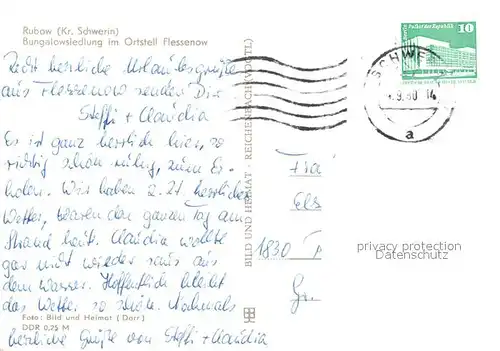 Rubow (Kr. Schwerin)
Bungalowsiedlung im Ortsteil Flessenow
Recht herzliche Urlaubsgrüße
aus Flessenow senden Dir
Steffi + Claudia
Es ist ganz herrlich hier, so
richtig schön ruhig, zum Er-
holen. Wir haben z. Zt. herrliches
Wetter, waren den ganzen Tag am
Strand heut. Claudia wollte
gar nicht wieder raus aus
dem Wasser. Hoffentlich bleibt
das Wetter so schön. Nochmals
Foto: Bild und Heimat (Darr)
DDR 0,25 M
herzliche Grüße von Steffi + Claudia
BILD UND HEIMAT · REICHENBACH (VOGTL)
Palast der Republik
10
SCHWE
.9.80 14
a
Els
1830
privacy protection
Datenschutz